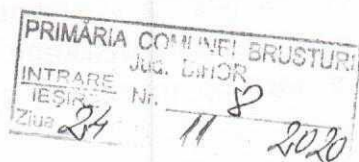 PRIMĂRIA COMUNEI BRUSTURI
Jud. BIHOR
INTRARE
IEȘIRE Nr. 8
Ziua 24 11 2020